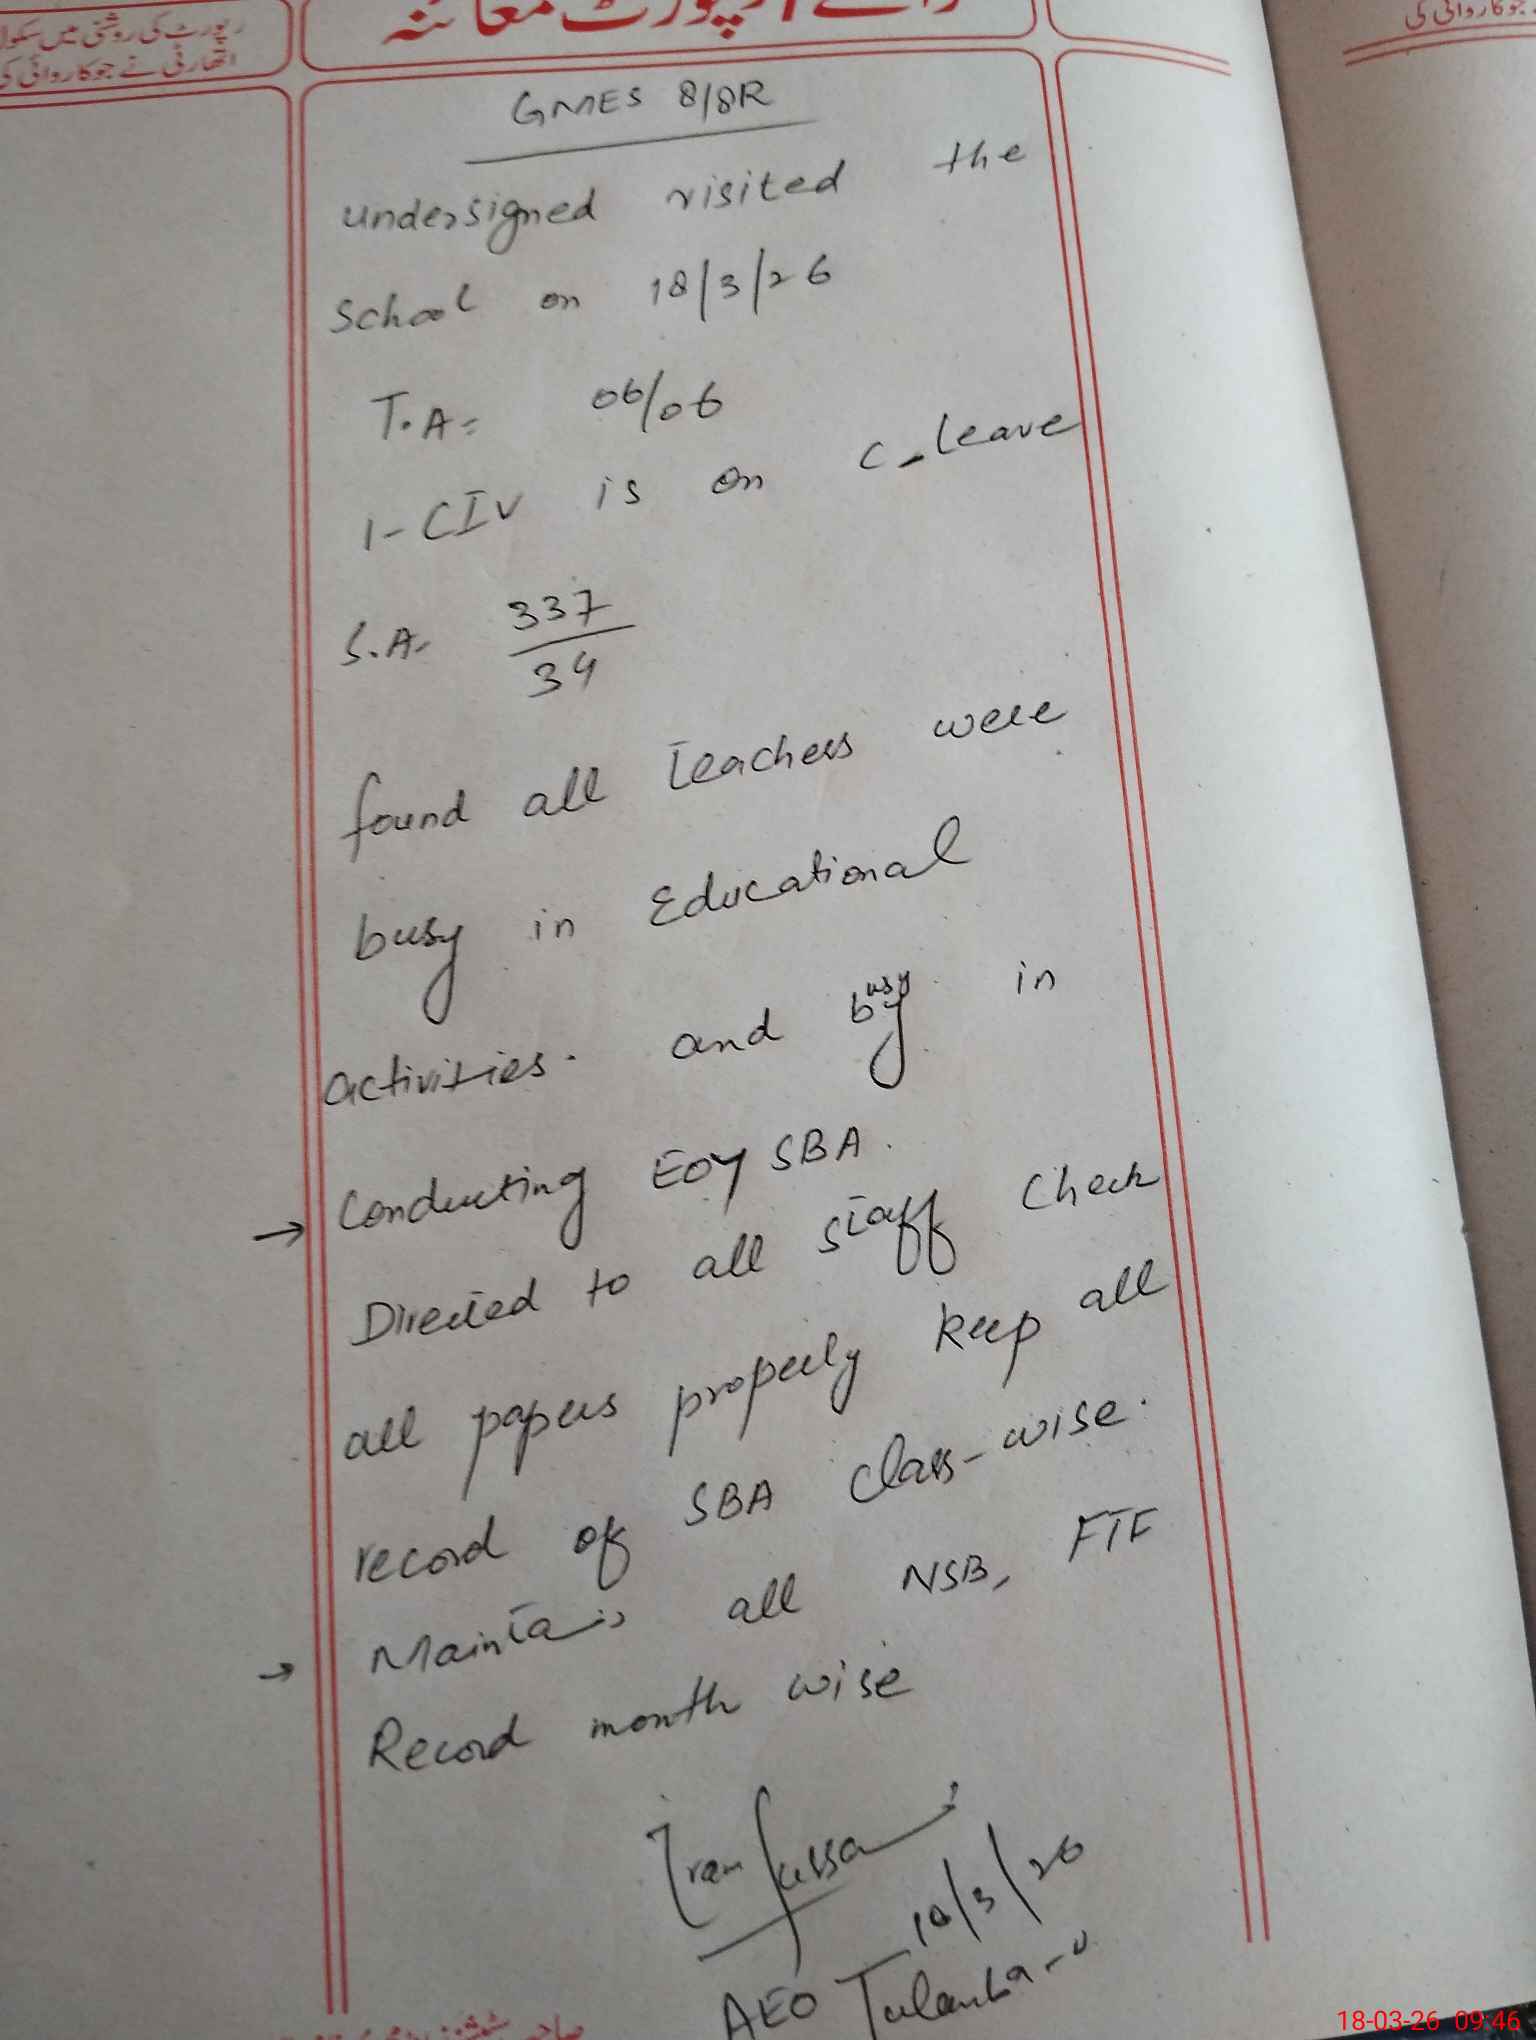 رپورٹ کی روشنی میں سکول
اتھارٹی نے جو کاروائی کی
رپورٹ معائنہ
جو کاروائی کی
GMES 8/8R
undersigned visited the
School on 18/3/26
T.A= 06/06
1-CIV is on C_leave
S.A- 337
34
found all Teachers were
busy in Educational
activities. and busy in
→ Conducting EOY SBA.
Directed to all staff Check
all papers properly keep all
record of SBA Class-wise.
→ Maintain all NSB, FTF
Record month wise
18/3/26
AEO Tulamba-
18-03-26 09:46